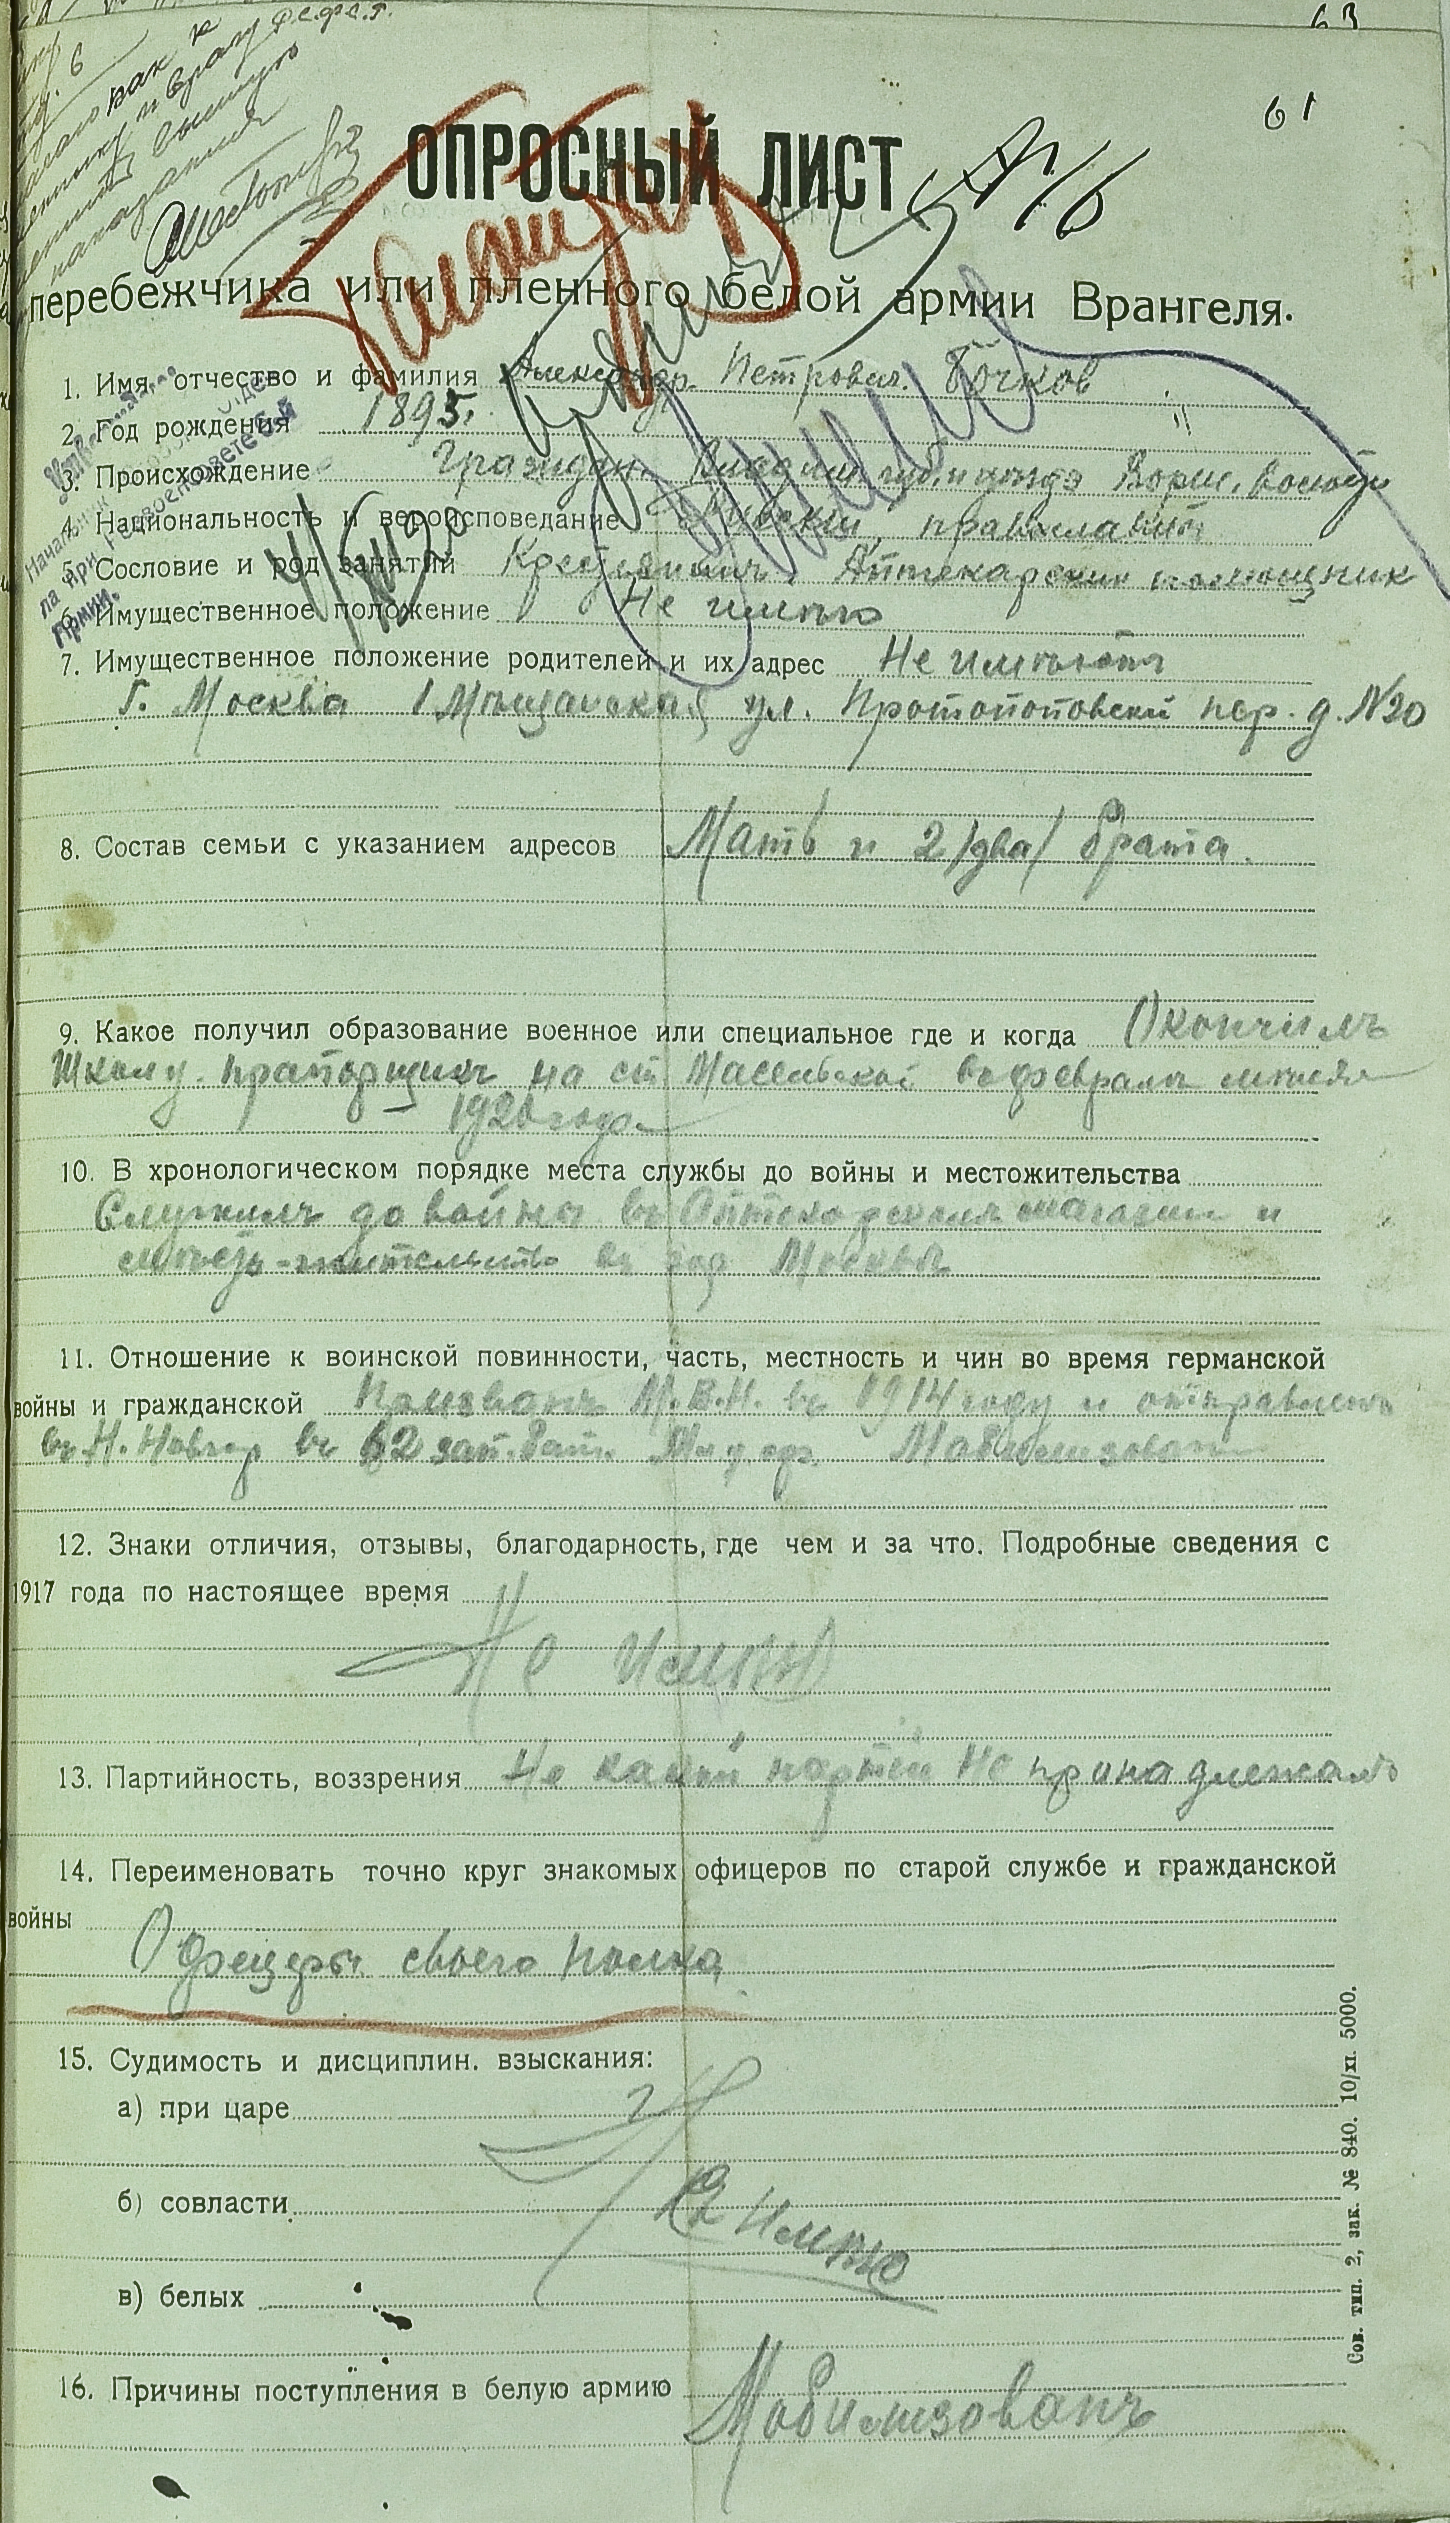 63
61
как к
и врагу Р.С.Ф.С.Р.
высшую
наказания
ОПРОСНЫЙ ЛИСТ
перебежчика или пленного белой армии Врангеля.
1. Имя, отчество и фамилия Александр Петрович Бочков
2. Год рождения 1895 г.
3. Происхождение Граждан. Владим. губ. и уезда Борис. волости
4. Национальность и вероисповедание Русский, православный
5. Сословие и род занятий Крестьянинъ. Аптекарский помощник
6. Имущественное положение Не имѣю
7. Имущественное положение родителей и их адрес Не имѣютъ
г. Москва 1 Мѣщанская ул. Протопоповский пер. д. №20
8. Состав семьи с указанием адресов Мать и 2 /два/ брата.
9. Какое получил образование военное или специальное где и когда Окончилъ
Школу прапорщик. на ст. Масельской въ февралѣ мѣсяц
1920 года
10. В хронологическом порядке места службы до войны и местожительства
Служилъ до войны въ Аптекарском магазин и
мѣсто-жительство въ гор Москвѣ
11. Отношение к воинской повинности, часть, местность и чин во время германской
войны и гражданской Призванъ М.В.Н. въ 1914 году и отправленъ
въ Н. Новгор въ 62 зап. бат. Мобилизован
12. Знаки отличия, отзывы, благодарность, где чем и за что. Подробные сведения с
1917 года по настоящее время
Не имѣю
13. Партийность, воззрения Не какой партии не принадлежалъ
14. Переименовать точно круг знакомых офицеров по старой службе и гражданской
войны
Офицеры своего полка
15. Судимость и дисциплин. взыскания:
а) при царе
б) совласти
Не имѣю
в) белых
16. Причины поступления в белую армию
Мобилизованъ
Сов. тип. 2, зак. № 840. 10/XI. 5000.